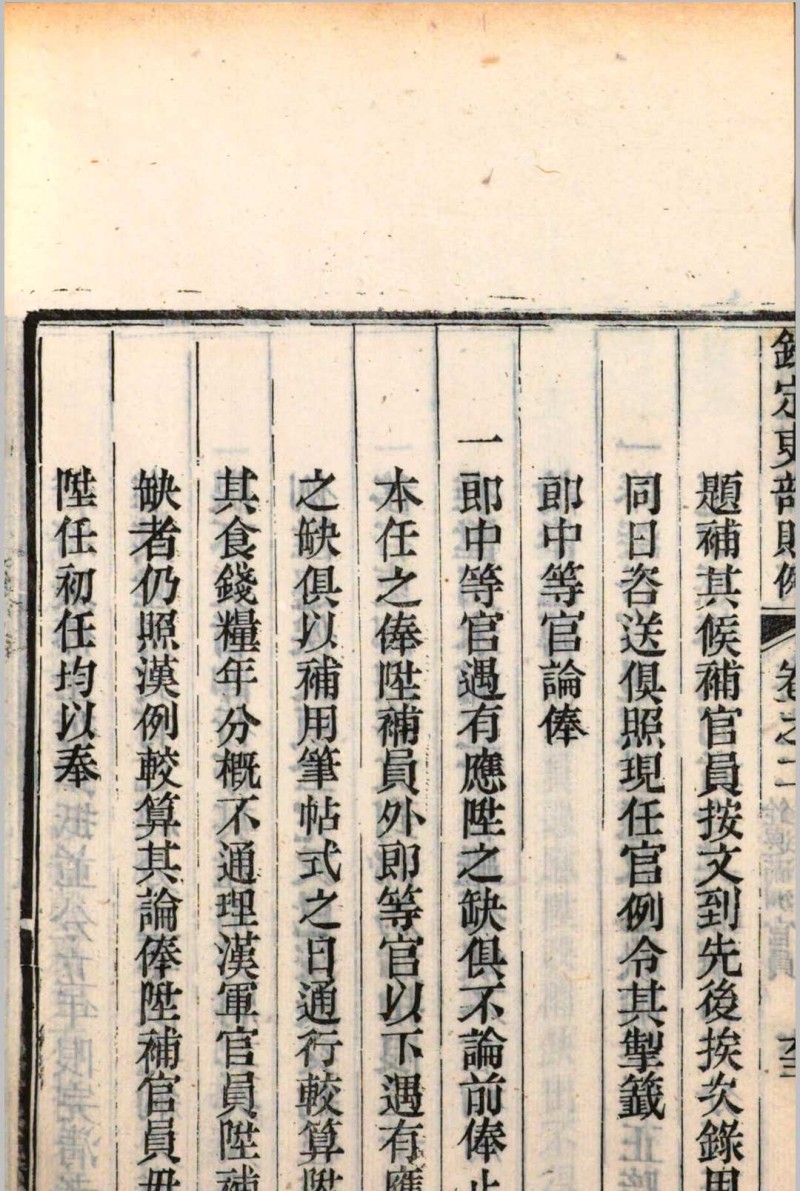 欽定吏部則例 卷之二
題補其候補官員按文到先後挨次錄用
同日咨送俱照現任官例令其掣籤
郎中等官論俸
一郎中等官遇有應陞之缺俱不論前俸止
本任之俸陞補員外郎等官以下遇有應
之缺俱以補用筆帖式之日通行較算陞
其食錢糧年分概不通理漢軍官員陞補
缺者仍照漢例較算其論俸陞補官員毋
陞任初任均以奉